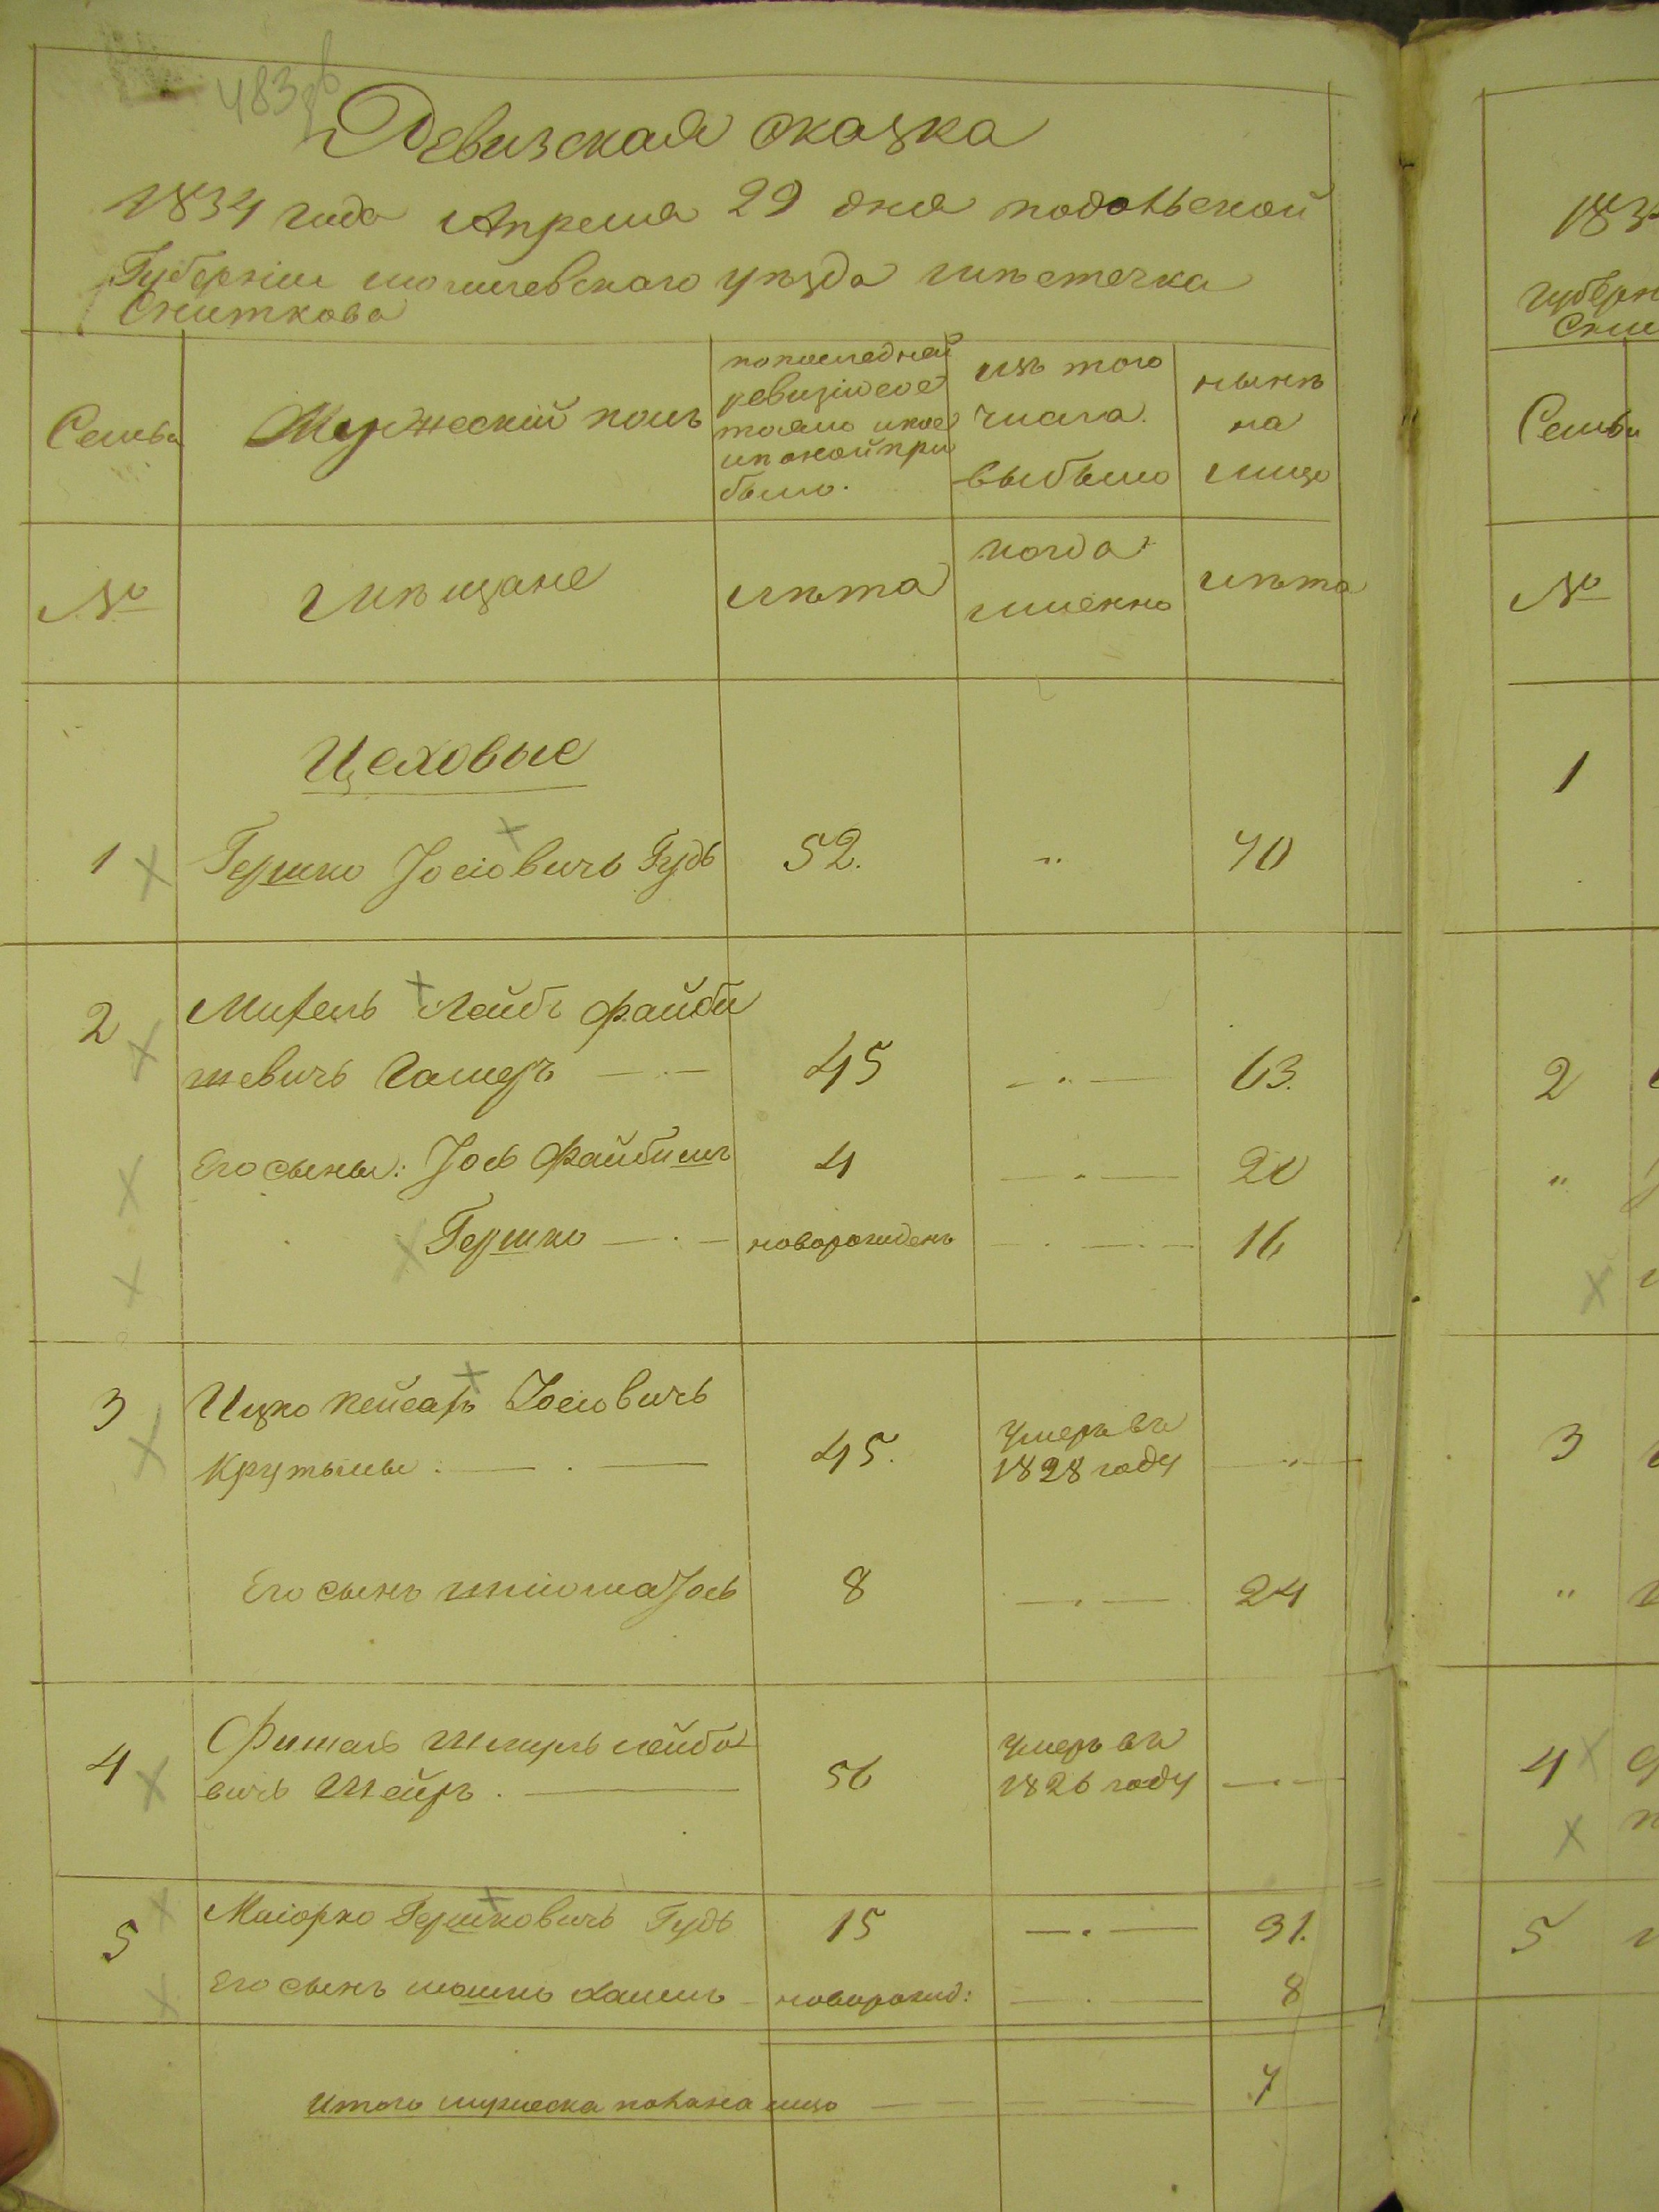 483
Ревизская сказка
1834 года Апреля 29 дня подольской
Губернiи могилевского уѣзда мѣстечка
Сниткова
Семьи
Мужескiй полъ
по последней
ревизiи сос
тояло и пос
лѣ оной при
было.
изъ того
числа
выбыло
нынѣ
на
лицо
№
Мѣщане
лѣта
когда
именно
лѣта
Цеховые
1 Гершко Iосiовичъ Гудь 52. " 70
2 Лейбъ Файби
шевичъ 45 — . — 63.
Его сыны: Iось Файбишъ 4 — . — 20
Гершко — . — новорожденъ — . — . — 16
3 Ицко Кейсаръ Iосiовичъ
45. Умеръ въ
1828 году — " —
Его сынъ Iось 8 — . — 24
4 Фишель Лейбо
вичъ . — 56 Умеръ въ
1826 году — . —
5 Маiорко Гершковичъ Гудь 15 — . — 31.
Его сынъ мошко хаимъ новорожд: — . — 8
Итого мужеска пола на лицо — 7
183
губерн
Сни
Семьи
№
1
2
"
3
"
4
5